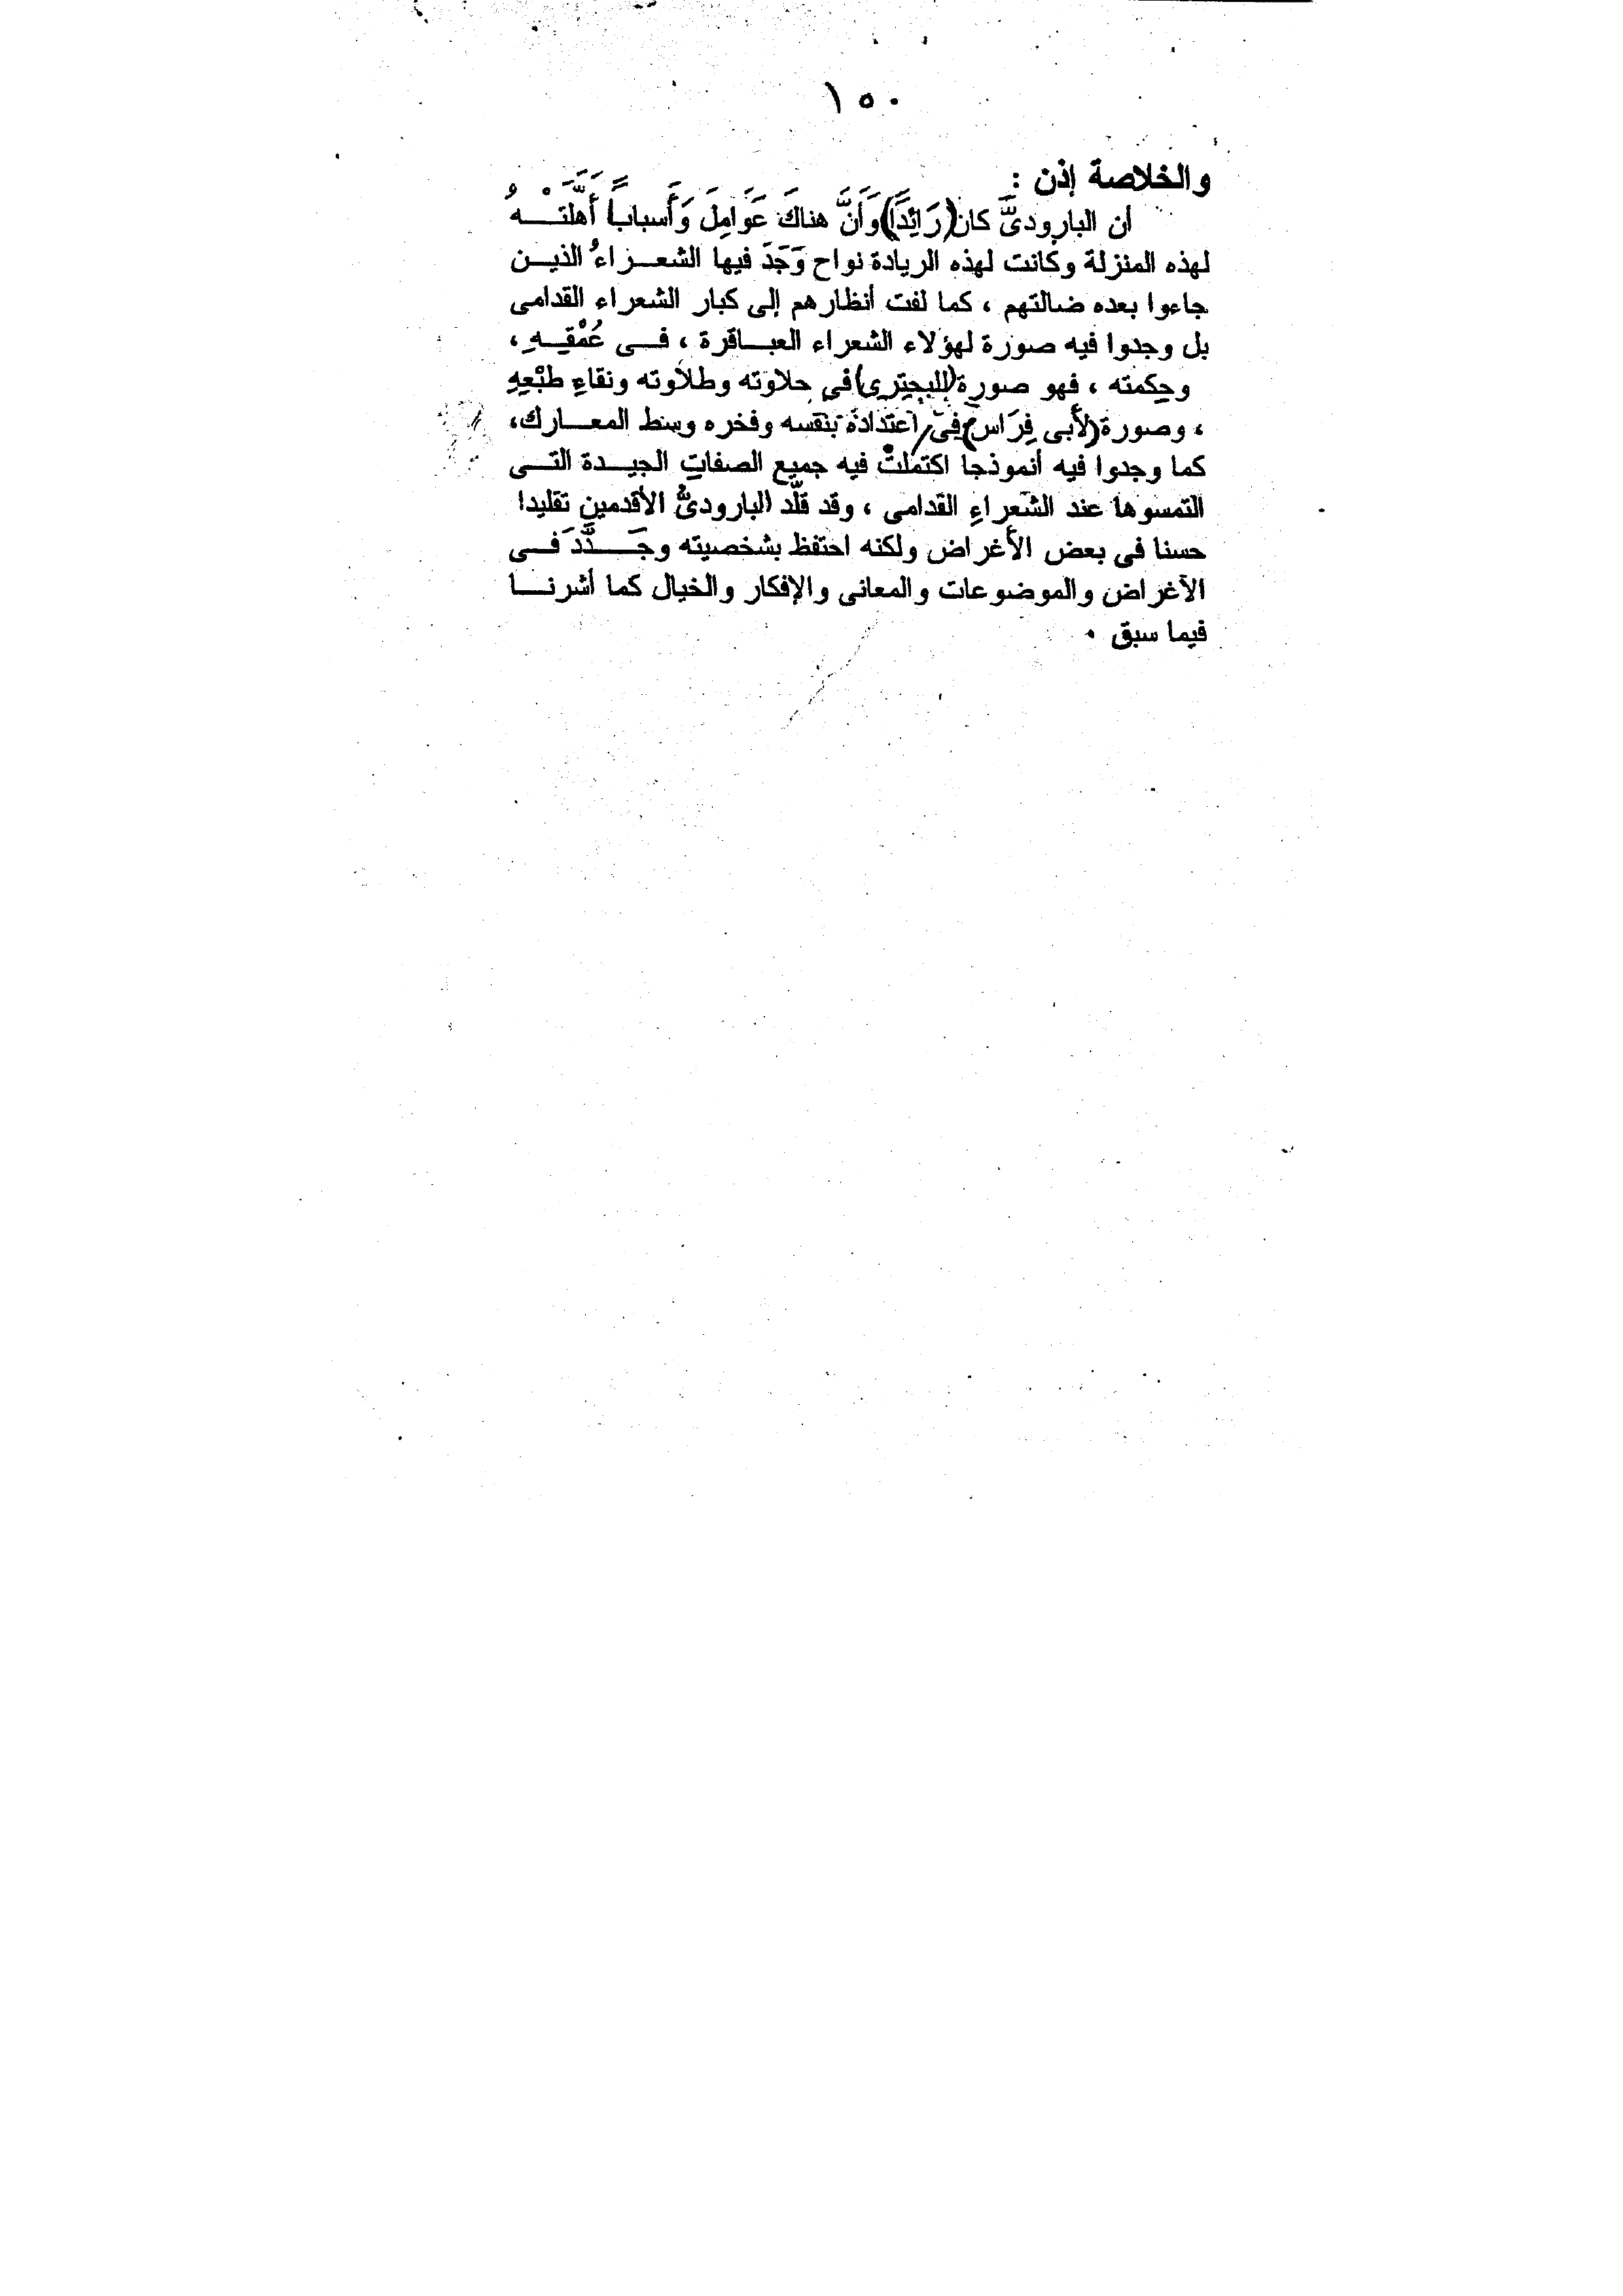 ١٥٠
والخلاصة إذن :
أن البارودىَّ كان (رَائِدًا) وَأَنَّ هناكَ عَوَامِلَ وَأَسباباً أَهَّلَتْـــهُ
لهذه المنزلة وكانت لهذه الريادة نواح وَجَدَ فيها الشعـــراءُ الذيــن
جاءوا بعده ضالتهم ، كما لفت أنظارهم إلى كبار الشعراء القدامى
بل وجدوا فيه صورة لهؤلاء الشعراء العبــاقرة ، فــى عُمْقِــهِ ،
وحِكمته ، فهو صورة (للبحترى) فى حلاوته وطلاوته ونقاءِ طبْعِهِ
، وصورة (لأَبى فِرَاس) فِى اعتدادة بنفسه وفخره وسط المعــارك،
كما وجدوا فيه أنموذجا اكتملتْ فيه جميع الصفاتِ الجيــدة التــى
التمسوها عند الشعراءِ القدامى ، وقد قلَّد البارودىُّ الأقدمين تقليدا
حسنا فى بعض الأغراض ولكنه احتفظ بشخصيته وجَـــدَّدَ فــى
الأغراض والموضوعات والمعانى والإفكار والخيال كما أشرنـــا
فيما سبق ٠